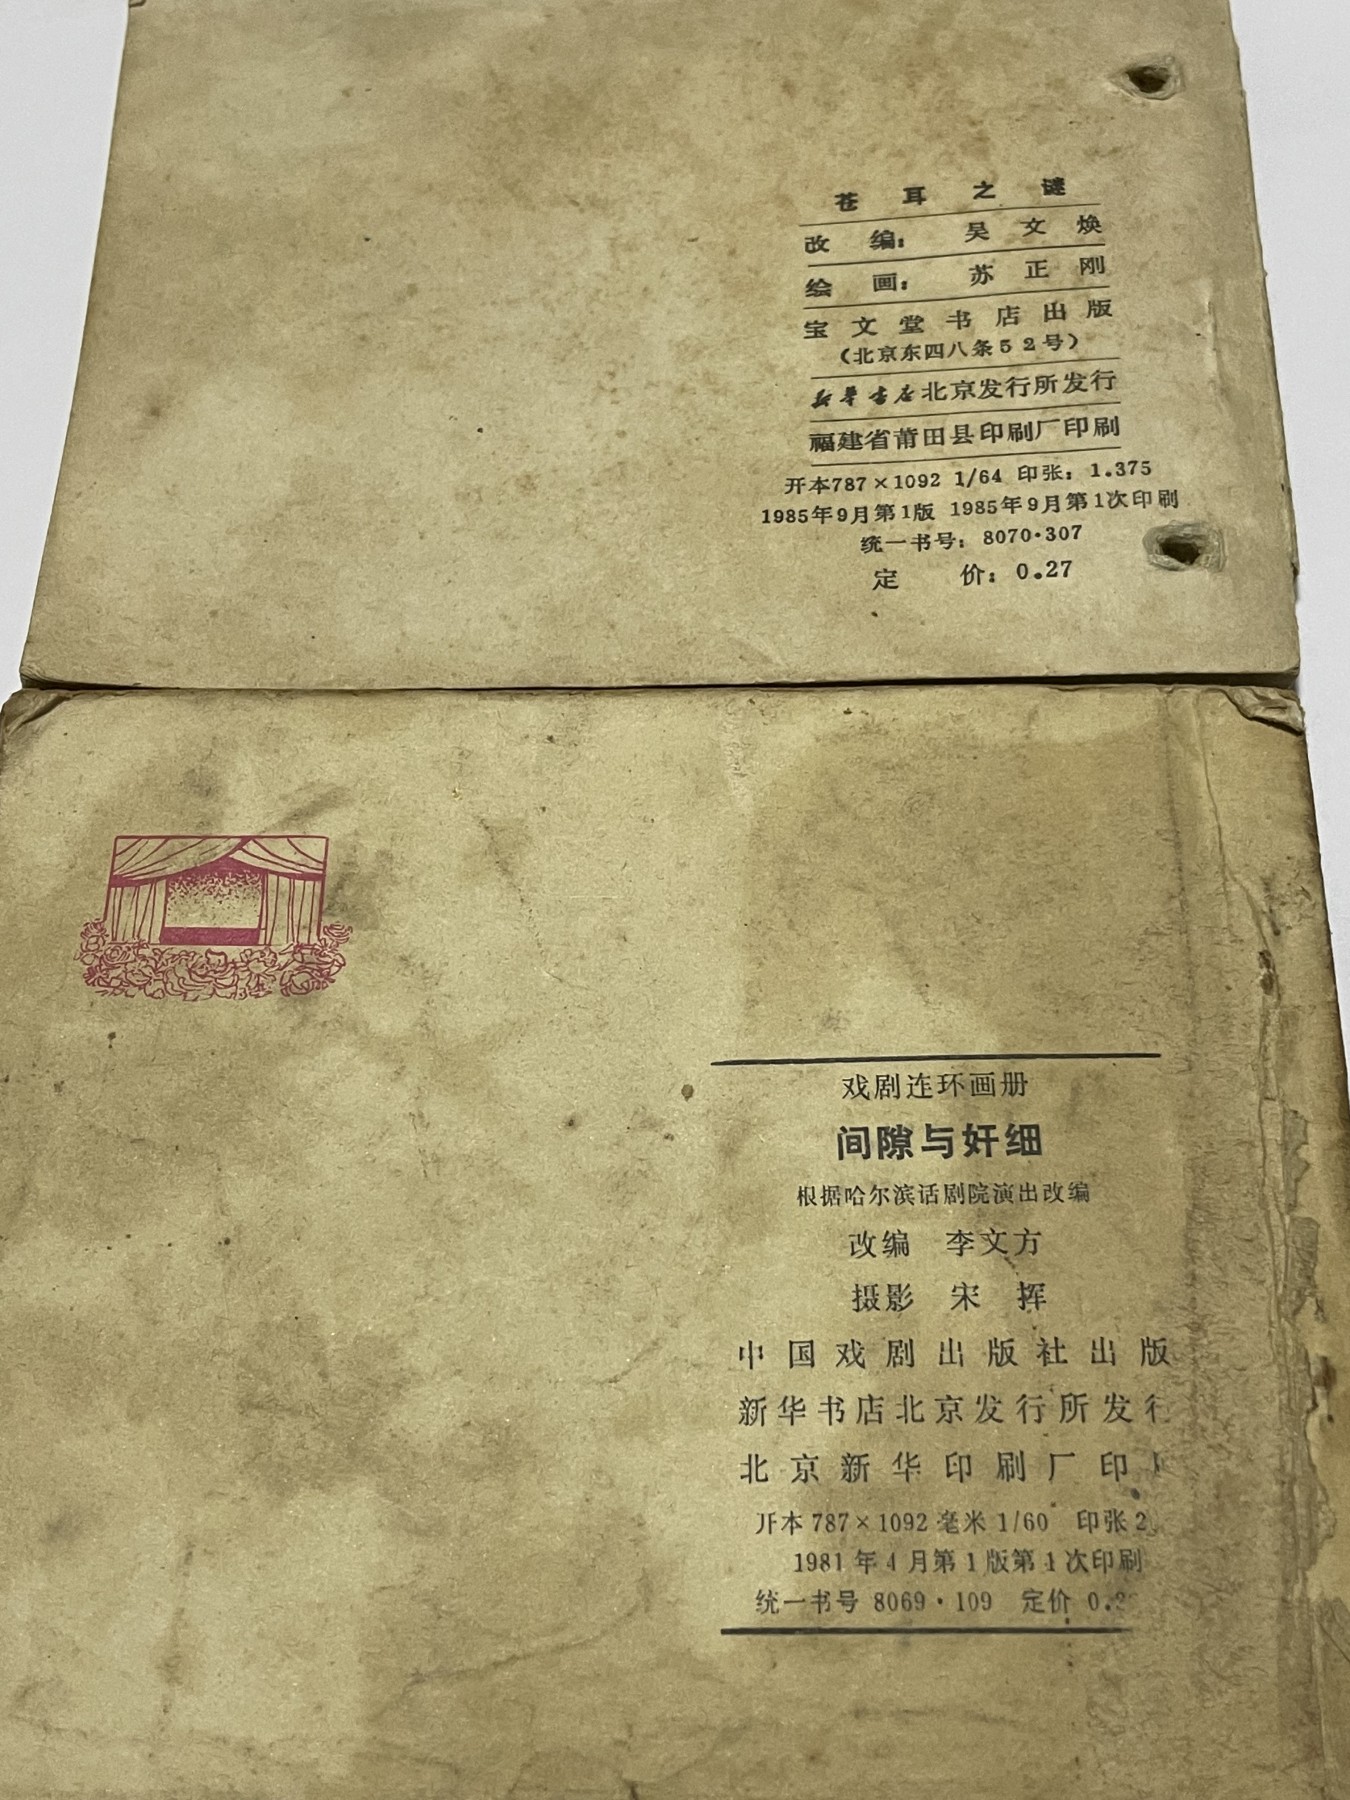 苍耳之谜
改编：吴文焕
绘画：苏正刚
宝文堂书店出版
（北京东四八条52号）
新华书店北京发行所发行
福建省莆田县印刷厂印刷
开本787×1092 1/64 印张：1.375
1985年9月第1版 1985年9月第1次印刷
统一书号：8070·307
定价：0.27
戏剧连环画册
间隙与奸细
根据哈尔滨话剧院演出改编
改编 李文方
摄影 宋挥
中国戏剧出版社出版
新华书店北京发行所发行
北京新华印刷厂印
开本 787×1092 毫米 1/60 印张 2
1981年4月第1版第1次印刷
统一书号 8069·109 定价 0.2